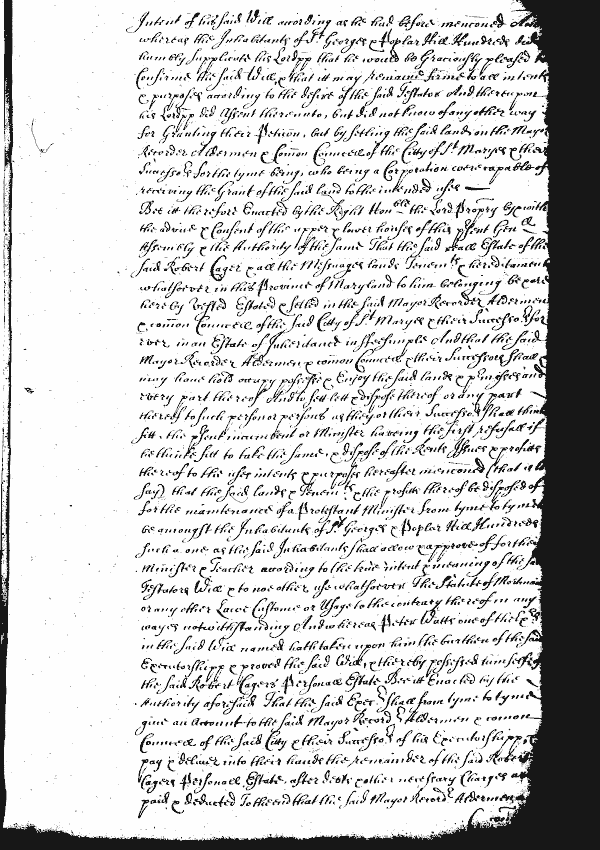 Intent of his said Will according as he had before menconed And
whereas the Inhabitants of St. Georges & Poplar Hill Hundreds did
humbly Supplicate his Lordpp that he would be Graciously pleased to
Confirme the said Will & that itt may remaine firme to all intents
& purposes according to the desire of the said Testator And thereupon
his Lordpp did Assent thereunto, but did not know of any other way
for Granting their Peticon, but by setling the said lands on the Mayor
Recorder Aldermen & Comon Councell of the Citty of St. Maryes & their
Successors for the tyme being, who being a Corporation were capable of
receiving the Grant of the said land to the intended uses
Bee itt therefore Enacted by the Right Honble the Lord Propry by & with
the advice & Consent of the upper & lower houses of this psent Genll
Assembly & the Authority of the same That the said reall Estate of the
said Robert Cager & all the Messuages lands Tenemts & hereditaments
whatsoever in this Province of Maryland to him belonging be & are
hereby Vested Estated & setled in the said Mayor Recorder Aldermen
& comon Councell of the said Citty of St Maryes & their Successors for
ever in an Estate of Inheritance in ffee simple And that the said
Mayor Recorder Aldermen & comon Councell & their Successors shall &
may have hold occupy possesse & Enjoy the said lands & pmisses and
every part thereof And to sett lett & dispose thereof or any part
thereof to such person or persons as they or their Successors shall think
fitt, the psent incumbent or Minister haveing the first refusall if
he thinke fitt to take the same, & dispose of the Rents Issues & profitts
thereof to the uses intents & purposes hereafter menconed (that is to
say) that the said lands & Tenemts & the profitts thereof be disposed of
for the maintenance of a Protestant Minister from tyme to tyme to
be amongst the Inhabitants of St Georges & Poplar Hill Hundreds
such a one as the said Inhabitants shall allow & approve of for their
Minister & Teacher according to the true intent & meaning of the said
Testators Will & to noe other use whatsoever The Statute of Mortmain
or any other Lawe Custome or Usage to the contrary thereof in any
wayes notwithstanding And whereas Peter Watts one of the Exrs
in the said Will named hath taken upon him the burthen of the said
Executorshipp & proved the said Will, & thereby possessed himselfe of
the said Robert Cagers Personall Estate Bee itt Enacted by the
Authority aforesaid That the said Execr shall from tyme to tyme
give an Account to the said Mayor Recordr Aldermen & comon
Councell of the said Citty & their Successors of his Executorshipp,
pay & deliver into their hands the remainder of the said Robert
Cagers Personall Estate, after debts & other necessary Charges are
paid & deducted To the end that the said Mayor Recordr Aldermen &